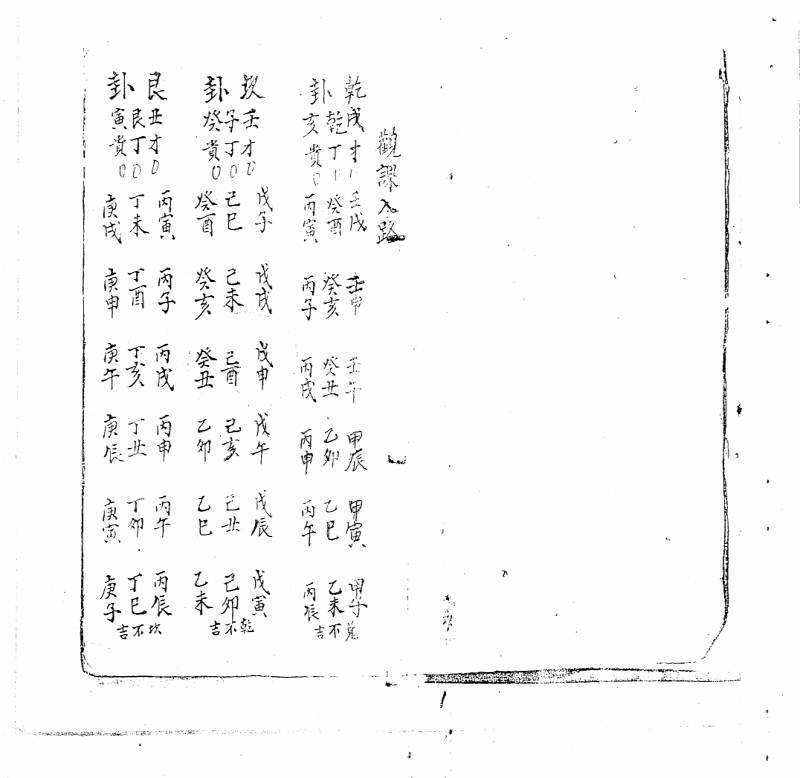 觀課入路
乾戌才 壬戌 壬申 壬午 甲辰 甲寅 甲子
乾丁 癸酉 癸亥 癸丑 乙卯 乙巳 乙未不
卦亥貴 丙寅 丙子 丙戌 丙申 丙午 丙辰吉
坎壬才 戊午 戊戌 戊申 戊午 戊辰 戊寅乾
子丁 己巳 己未 己酉 己亥 己丑 己卯不
卦癸貴 癸酉 癸亥 癸丑 乙卯 乙巳 乙未吉
艮丑才 丙寅 丙子 丙戌 丙申 丙午 丙辰坎
艮丁 丁未 丁酉 丁亥 丁丑 丁卯 丁巳不
卦寅貴 庚戌 庚申 庚午 庚辰 庚寅 庚子吉
1